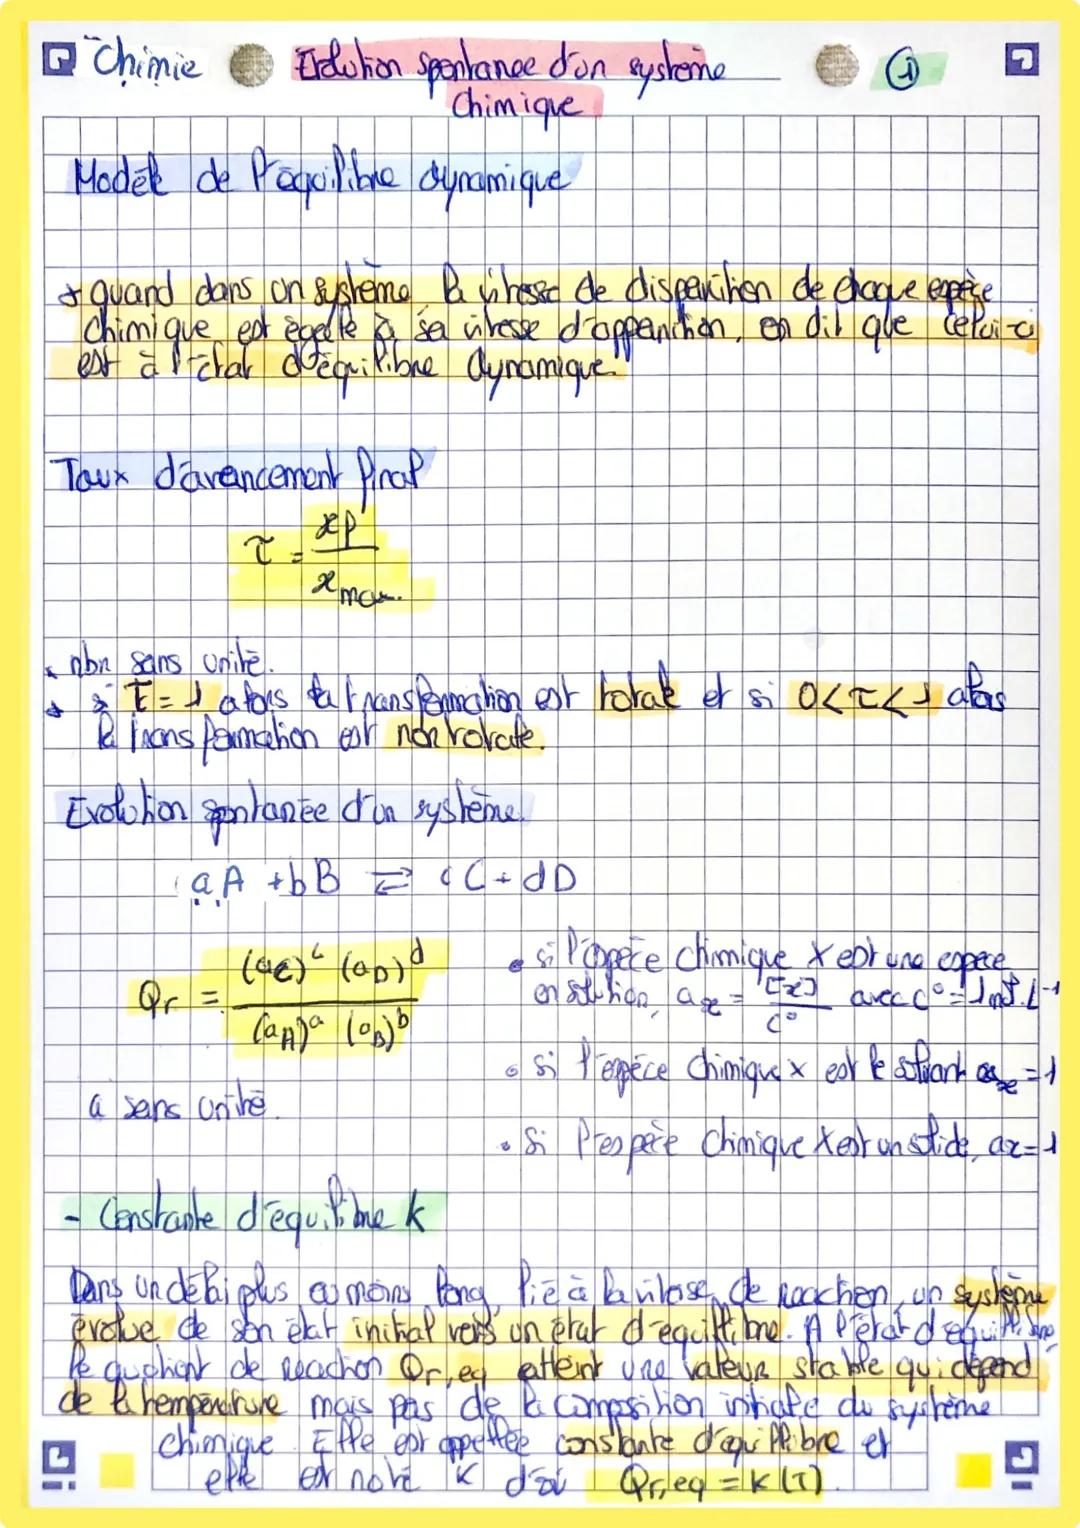 Chimie Evolution spontanee d'un système ①
Chimique
Modèle de l'équilibre dynamique
→ quand dans un système la vitesse de disparition de chaque espèce
chimique est égale à sa vitesse d'apparition, on dit que celui-ci
est à l'état d'équilibre dynamique.
Taux d'avancement final
τ = xf / xmax.
* nbr sans unité.
→ si τ = 1 alors la transformation est totale et si 0<τ<1 alors
la transformation est non totale.
Evolution spontanée d'un système.
aA + bB ⇌ cC + dD
Qr = (aC)^c (aD)^d / (aA)^a (aB)^b
a sans unité.
• si l'espèce chimique X est une espece
en solution, ax = [x]/c° avec c° = 1 mol.L⁻¹
• si l'espéce chimique x est le solvant ax = 1
• Si l'espèce chimique X est un solide, ax = 1
- Constante d'équilibre k
Dans un délai plus ou moins long, lié à la vitesse de reaction, un système
évolue de son état initial vers un état d'équilibre. A l'état d'équilibre,
le quotient de reaction Qr,eq atteint une valeur stable qui dépend
de la température mais pas de la composition initiale du système
chimique. Elle est appellée constante d'équilibre et
elle est noté K d'où Qr,eq = K(T).